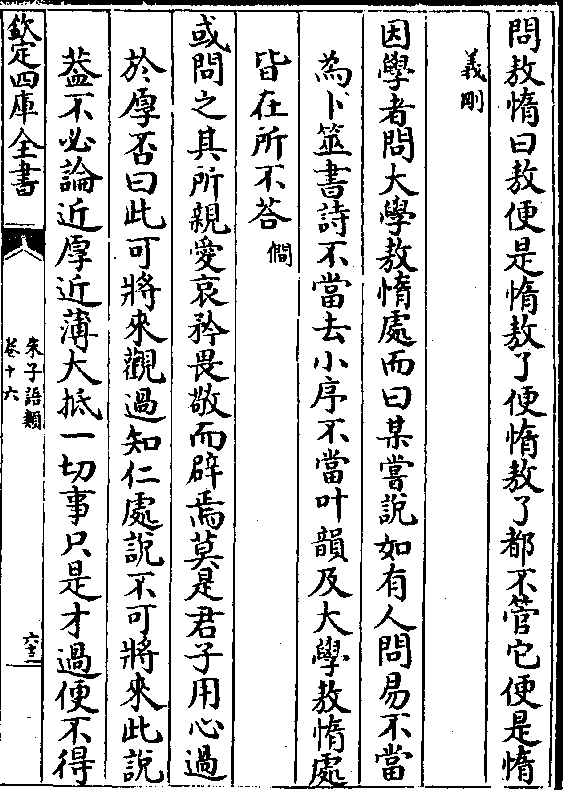 問敖惰曰敖便是惰敖了便惰敖了都不管它便是惰
義剛
因學者問大學敖惰處而曰某嘗說如有人問易不當
為卜筮書詩不當去小序不當叶韻及大學敖惰處
皆在所不答僩
或問之其所親愛哀矜畏敬而辟焉莫是君子用心過
於厚否曰此可將來觀過知仁處說不可將來此說
葢不必論近厚近薄大抵一切事只是才過便不得
欽定四庫全書
朱子語類
卷十六
六十三